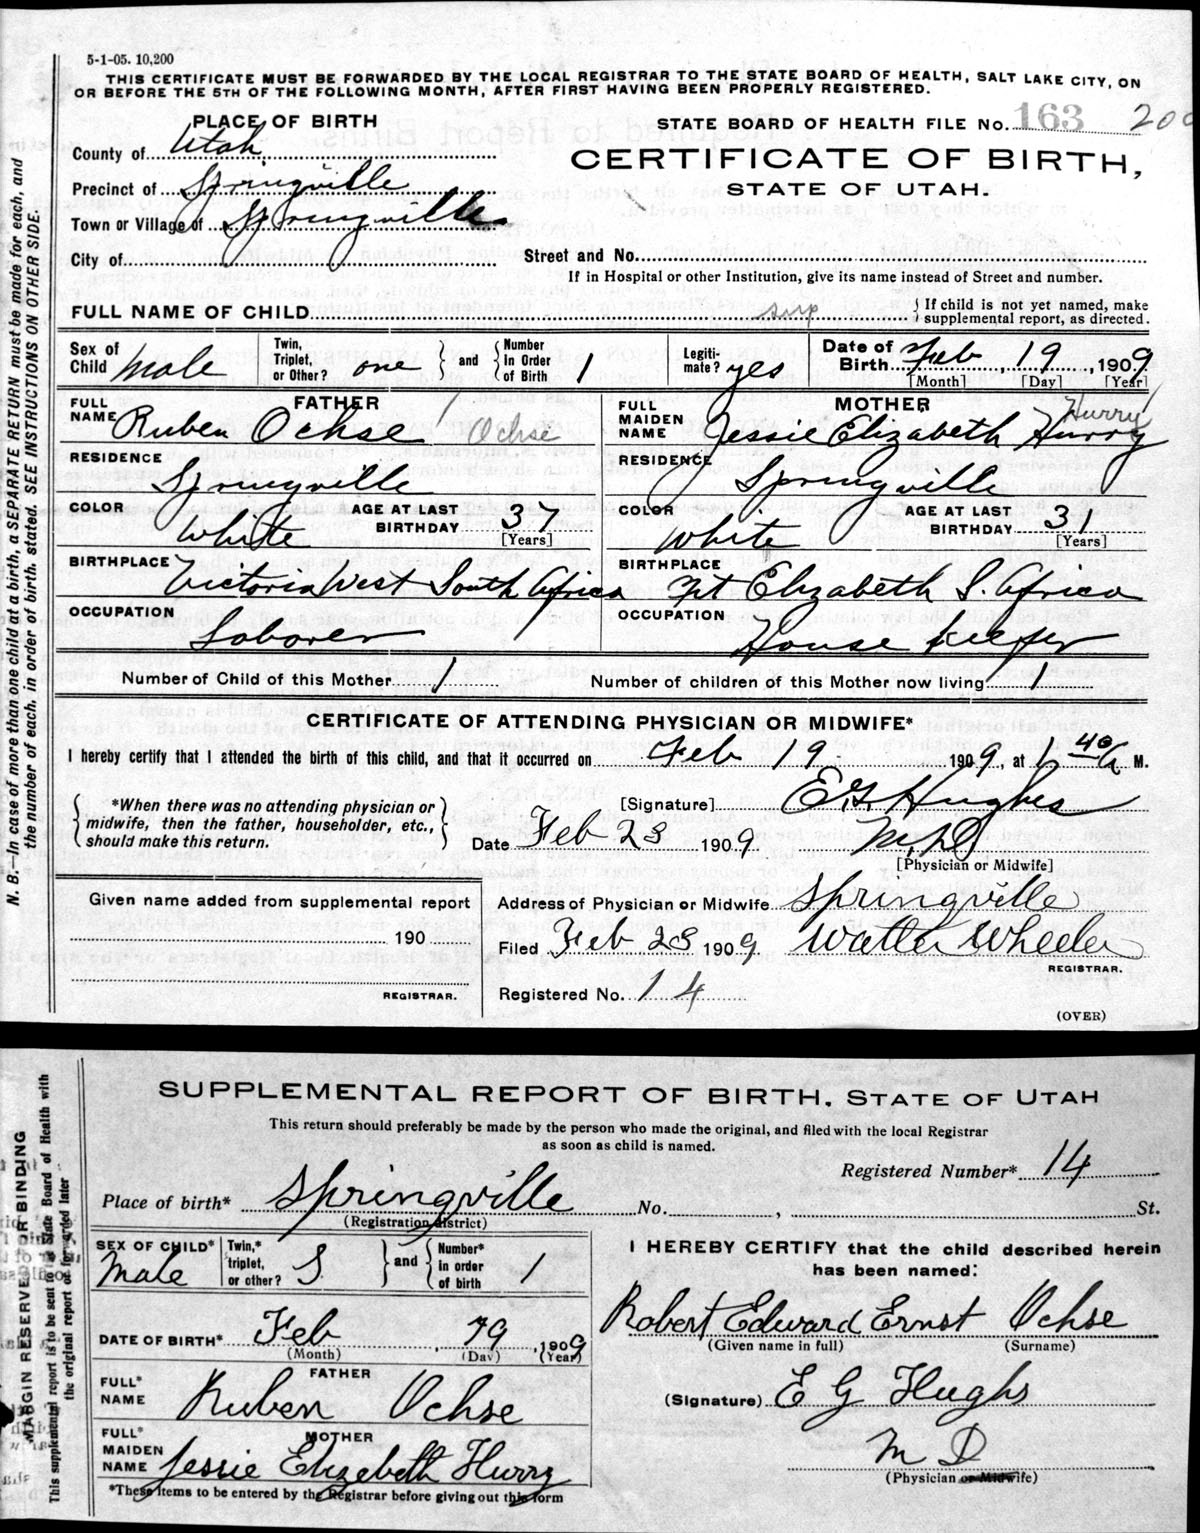 5-1-05. 10,200
THIS CERTIFICATE MUST BE FORWARDED BY THE LOCAL REGISTRAR TO THE STATE BOARD OF HEALTH, SALT LAKE CITY, ON
OR BEFORE THE 5TH OF THE FOLLOWING MONTH, AFTER FIRST HAVING BEEN PROPERLY REGISTERED.
N. B.—In case of more than one child at a birth, a SEPARATE RETURN must be made for each, and
the number of each, in order of birth, stated. SEE INSTRUCTIONS ON OTHER SIDE.
PLACE OF BIRTH
STATE BOARD OF HEALTH FILE No. 163 200
County of Utah
CERTIFICATE OF BIRTH,
STATE OF UTAH.
Precinct of Springville
Town or Village of Springville
City of
Street and No.
If in Hospital or other Institution, give its name instead of Street and number.
FULL NAME OF CHILD sup { If child is not yet named, make
supplemental report, as directed.
Sex of Child Male Twin, Triplet, or Other? one } and { Number in Order of Birth 1 Legiti-mate? yes Date of Birth Feb, 19, 1909
[Month] [Day] [Year]
FATHER
FULL NAME Ruben Ochse Ochse
MOTHER
FULL MAIDEN NAME Jessie Elizabeth Hurry Hurry
RESIDENCE Springville
RESIDENCE Springville
COLOR White AGE AT LAST BIRTHDAY 37 [Years]
COLOR White AGE AT LAST BIRTHDAY 31 [Years]
BIRTHPLACE Victoria West South Africa
BIRTHPLACE Pt Elizabeth S. Africa
OCCUPATION Laborer
OCCUPATION House keeper
Number of Child of this Mother 1 Number of children of this Mother now living 1
CERTIFICATE OF ATTENDING PHYSICIAN OR MIDWIFE*
I hereby certify that I attended the birth of this child, and that it occurred on Feb 19 1909, at 1 40 A M.
{ *When there was no attending physician or
midwife, then the father, householder, etc.,
should make this return. }
[Signature] E. G. Hughes
Date Feb 23 1909 M. D
[Physician or Midwife]
Given name added from supplemental report
190
REGISTRAR.
Address of Physician or Midwife Springville
Filed Feb 23 1909 Walter Wheeler
REGISTRAR.
Registered No. 14
(OVER)
MARGIN RESERVED FOR BINDING
This supplemental report is to be sent to State Board of Health with
the original report or forwarded later
SUPPLEMENTAL REPORT OF BIRTH, STATE OF UTAH
This return should preferably be made by the person who made the original, and filed with the local Registrar
as soon as child is named.
Registered Number* 14
Place of birth* Springville No. , St.
(Registration district)
SEX OF CHILD* Male Twin,* triplet, or other? S } and { Number* in order of birth 1
DATE OF BIRTH* Feb, 19, 1909
(Month) (Day) (Year)
FATHER
FULL* NAME Ruben Ochse
MOTHER
FULL* MAIDEN NAME Jessie Elizebeth Hurry
*These items to be entered by the Registrar before giving out this form
I HEREBY CERTIFY that the child described herein
has been named:
Robert Edward Ernst Ochse
(Given name in full) (Surname)
(Signature) E G Hughs
M D
(Physician or Midwife)